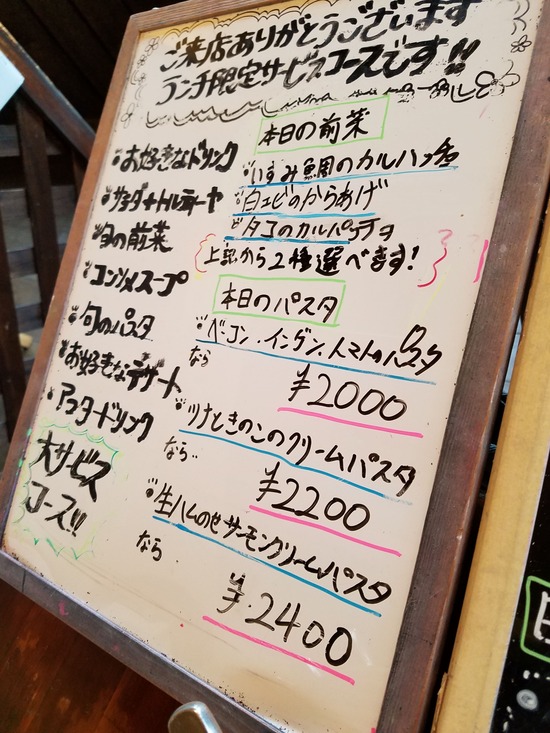 ご来店ありがとうございます
ランチ限定サービスコースです!!
お好きなドリンク
サラダ+トルティーヤ
旬の前菜
コンソメスープ
旬のパスタ
お好きなデザート
アフタードリンク
大サービス
コース!!
本日の前菜
いすみ真鯛のカルパッチョ
白エビのからあげ
タコのカルパッチョ
上記から2種選べます!
本日のパスタ
ベーコン、インゲン、トマトのパスタ
なら
¥2000
ツナときのこのクリームパスタ
なら
¥2200
生ハムのせサーモンクリームパスタ
なら
¥2400